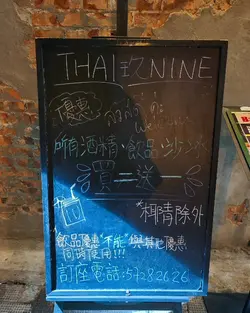 THAI玖NINE
優惠
所有酒精、飲品、沙冰
買二送一
*椰青除外
飲品優惠"不能"與其他優惠
同時使用!!!
訂座電話:57282626